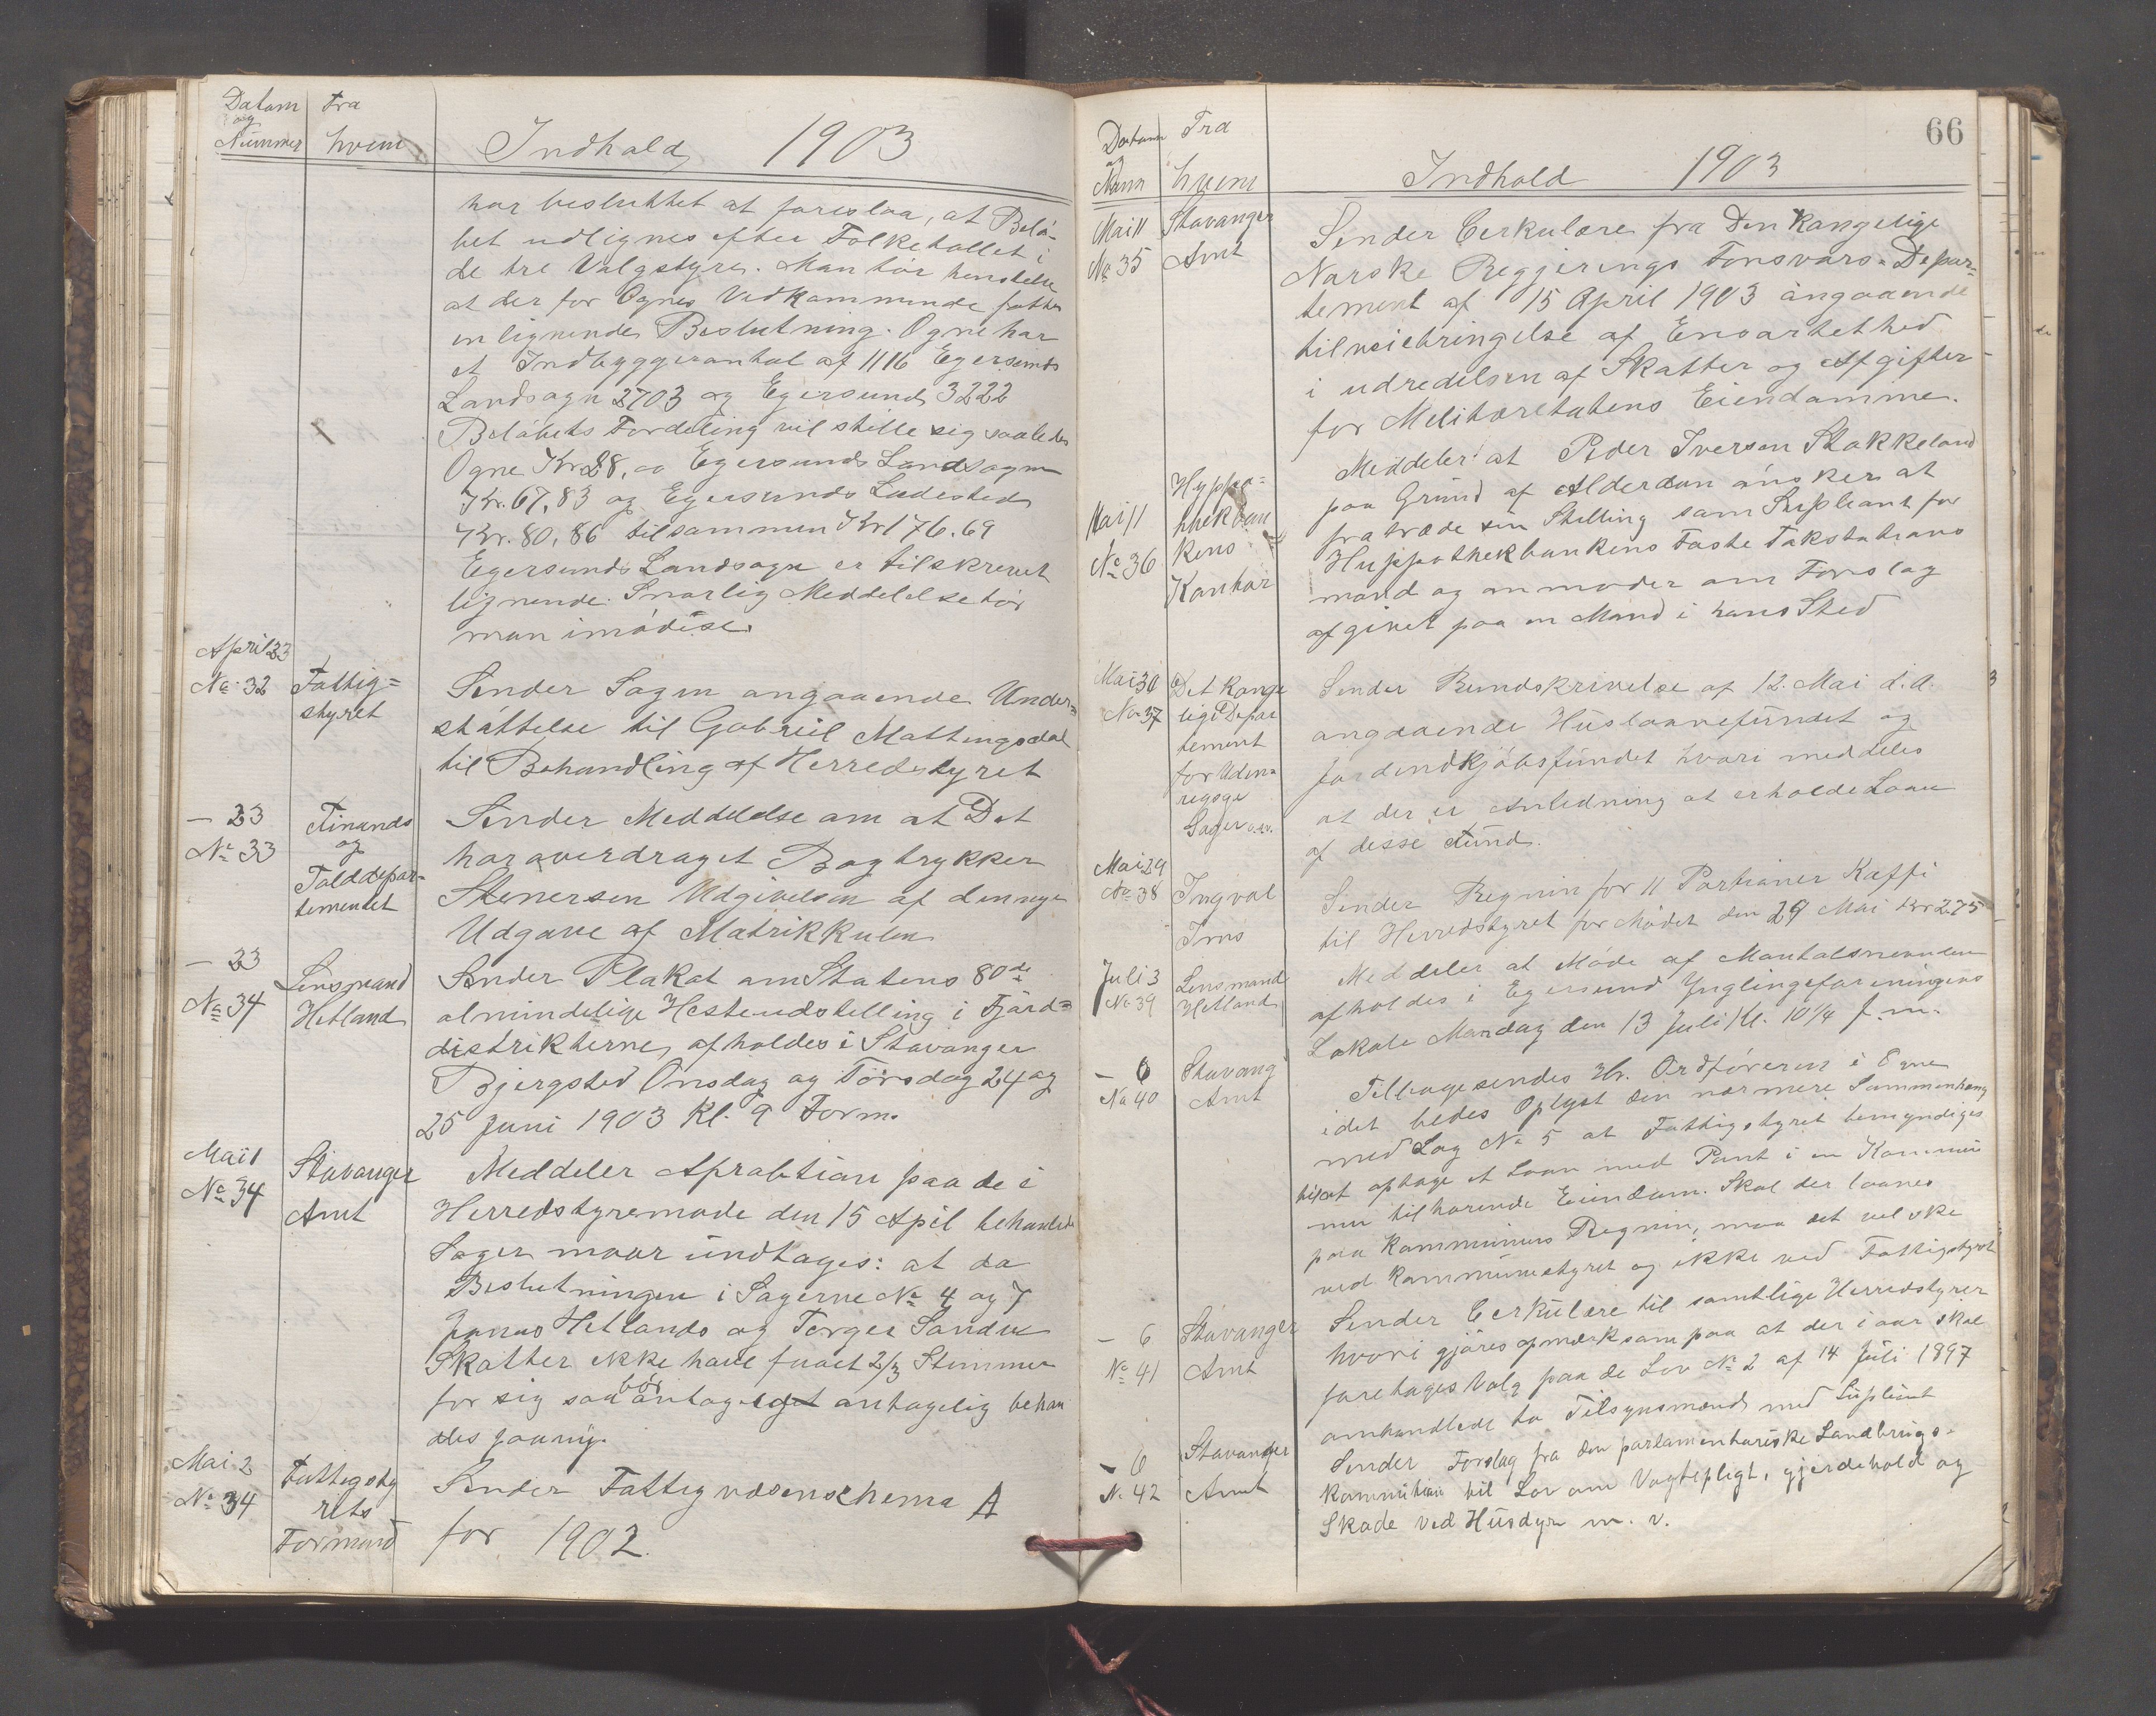 Datum
og
Nummer
Fra
hvem
Indhold 1903
har besluttet at foreslaa, at Belö-
bet udlignes efter Folketallet i
de tre Valgstyre. Man tör henstille
at der for Ognes Vedkommende fattes
en lignende Beslutning. Ogne har
et Indbyggerantal af 1116 Egersunds
Landsogn 2703 og Egersund 3222
Belöbets Fordeling vil stille sig saaledes
Ogne Kr 28,00 Egersunds Landsogn
Kr. 67,83 og Egersunds Ladested
Kr. 80,86 tilsammen Kr 176.69
Egersunds Landsogn er tilskrevet
lignende. Snarlig Meddelelse tör
man imödese.
April 23
No 32
Fattig=
styret
Sender Sagen angaaende Under=
stöttelse til Gabriel Mattingsdal
til Behandling af Herredstyret
— 23
No 33
Finands
og
Tolddepar-
tementet
Sender Meddelelse om at Det
har overdraget Bogtrykker
Stenersen Udgivelsen af den nye
Udgave af Matrikkulen
— 23
No 34
Lensmand
Hetland
Sender Plakat om Statens 80de
almindelige Hesteudstelling i Fjord=
distrikterne, afholdes i Stavanger
Bjergsted Onsdag og Torsdag 24 og
25 Juni 1903 Kl. 9 Form.
Mai 1
No 34
Stavanger
Amt
Meddeler Aprobtion paa de i
Herredstyremode den 15 Apil behanlede
Sager maar undtages: at da
Beslutningen i Sagerne No 4 og 7
Jonas Hetlands og Torger Sandve
Skatter ikke have faaet 2/3 Stemmer
for sig saa bör antageget antagelig behan
dles paany.
Mai 2
No 34
Fattigsty
rets
Formand
Sender Fattigvæsenschema A
for 1902.
66
Datum
og
Num
Fra
hvem
Indhold 1903
Mai 11
No 35
Stavanger
Amt
Sender Cerkulære fra Den Kongelige
Norske Regjerings Forsvars-Depar=
tement af 15 April 1903 angaaende
tilveiebringelse af Ensartethed
i udredelsen af Skatter og Afgifter
for Melitæretatens Eiendomme.
Mai 11
No 36
Hyppo=
thekban
kens
Kontor
Meddeler at Peder Iversen Stokkeland
paa Grund af Alderdom önsker at
fratræde sin Stelling som Supleant for
Huppothekbankens Faste Takstations
mand og anmoder om Forslag
afgivet paa en Mand i hans Sted
Mai 30
No 37
Det Konge
lige Depar
tement
for Uden=
rigsge
Sager o.s.v.
Sender Rundskrivelse af 12. Mai d.a.
angaaende Huslaanefundet og
Jordindkjöbsfundet hvori meddeles
at der er Anledning at erholde Laan
af disse Fund.
Mai 29
No 38
Ingval
Tms
Sender Regnin for 11 Portioner Kaffi
til Herredstyret for Mödet den 29 Mai Kr 2.75
Juli 3
No 39
Lensmand
Hetland
Meddeler at Möde af Mantalsnevnden
afholdes i Egersund Ynglingeforeningens
Lokale Mandag den 13 Juli Kl. 10 1/4 f.m.
— 6
No 40
Stavang
Amt
Tilbagesendes Hr. Ordföreren i Ogne
idet bedes Oplyst den nærmere Sammenhæng
med Sag No 5 at Fattigstyret bemyndiges
til at optage et Laan med Pant i en Kommu
nen tilhorende Eiendom. Skal der laanes
paa Kommunens Regnin, maa det vel ske
ved Kommunestyret og ikke ved Fattigstyret
— 6
No 41
Stavanger
Amt
Sender Cerkulære til samtlige Herredstyrer
hvori gjöres opmærksom paa at der i aar skal
foretages Valg paa de Lov No 2 af 14 Juli 1897
omhandlede to Tilsynsmænd med Suplient
— 6
No 42
Stavanger
Amt
Sender Forslag fra den parlamentariske Landbrugs-
kommition til Lov om Vogtepligt, gjerdehold og
Skade ved Husdyr m. v.